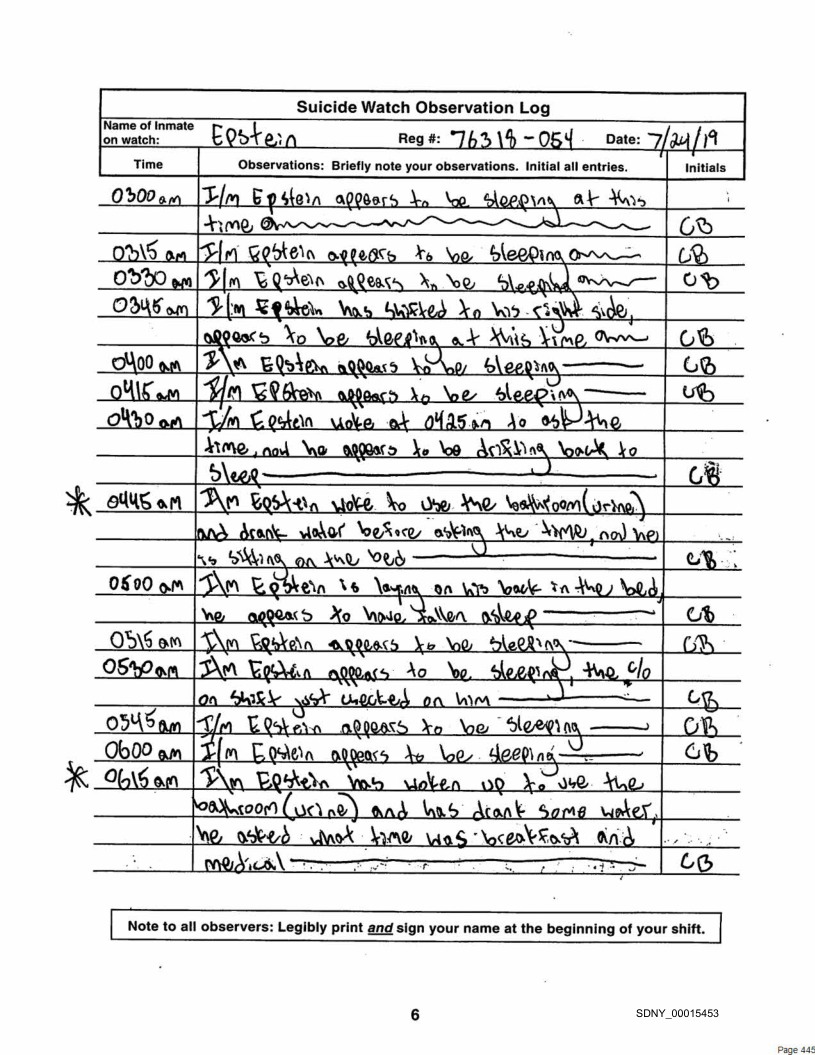 Suicide Watch Observation Log
Name of Inmate on watch: Epstein Reg #: 76318-054 Date: 7/24/19
Time Observations: Briefly note your observations. Initial all entries. Initials
0300 am I/m Epstein appears to be sleeping at this
time CB
0315 am I/m Epstein appears to be sleeping CB
0330 am I/m Epstein appears to be sleeping CB
0345 am I/m Epstein has shifted to his right side,
appears to be sleeping at this time CB
0400 am I\m Epstein appears to be sleeping CB
0415 am I/m Epstein appears to be sleeping CB
0430 am I/m Epstein woke at 0425 am to ask the
time, now he appears to be drifting back to
sleep CB
* 0445 am I\m Epstein woke to use the bathroom (urine)
and drank water before asking the time, now he
is sitting on the bed CB
0500 am I\m Epstein is laying on his back in the bed,
he appears to have fallen asleep CB
0515 am I\m Epstein appears to be sleeping CB
0530 am I\m Epstein appears to be sleeping, the c/o
on shift just checked on him CB
0545 am I/m Epstein appears to be sleeping CB
0600 am I/m Epstein appears to be sleeping CB
* 0615 am I\m Epstein has woken up to use the
bathroom (urine) and has drank some water,
he asked what time was breakfast and
medical CB
Note to all observers: Legibly print and sign your name at the beginning of your shift.
6 SDNY_00015453
Page 445